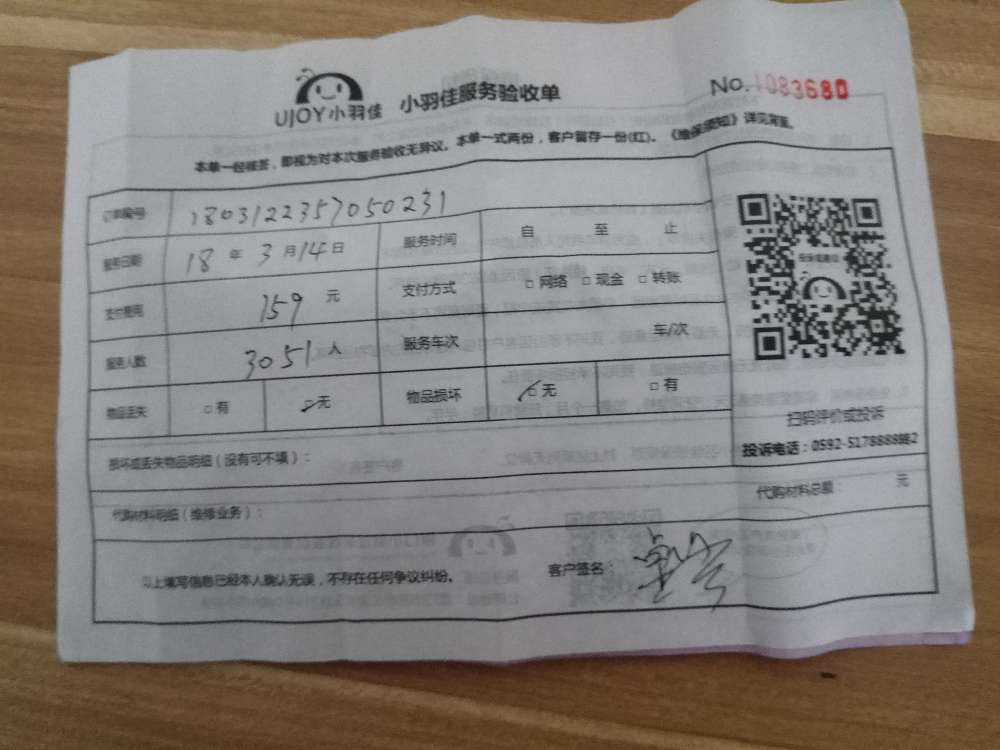 UJOY小羽佳 小羽佳服务验收单 No.1083680
本单一经签签，即视为对本次服务验收无异议。本单一式两份，客户留存一份(红)。《维保须知》详见背面。
订单编号 1803122357050231
服务日期 18 年 3 月 14 日 服务时间 自 至 止
支付费用 159 元 支付方式 □ 网络 □ 现金 □ 转账
服务人数 3051 人 服务车次 车/次
物品丢失 □ 有 □ 无 物品损坏 □ 无 □ 有
扫码评价或投诉
损坏或丢失物品明细（没有可不填）：
投诉电话：0592-5178888转2
代购材料明细（维修业务）：
代购材料总额： 元
以上填写信息已经本人确认无误，不存在任何争议纠纷。 客户签名：